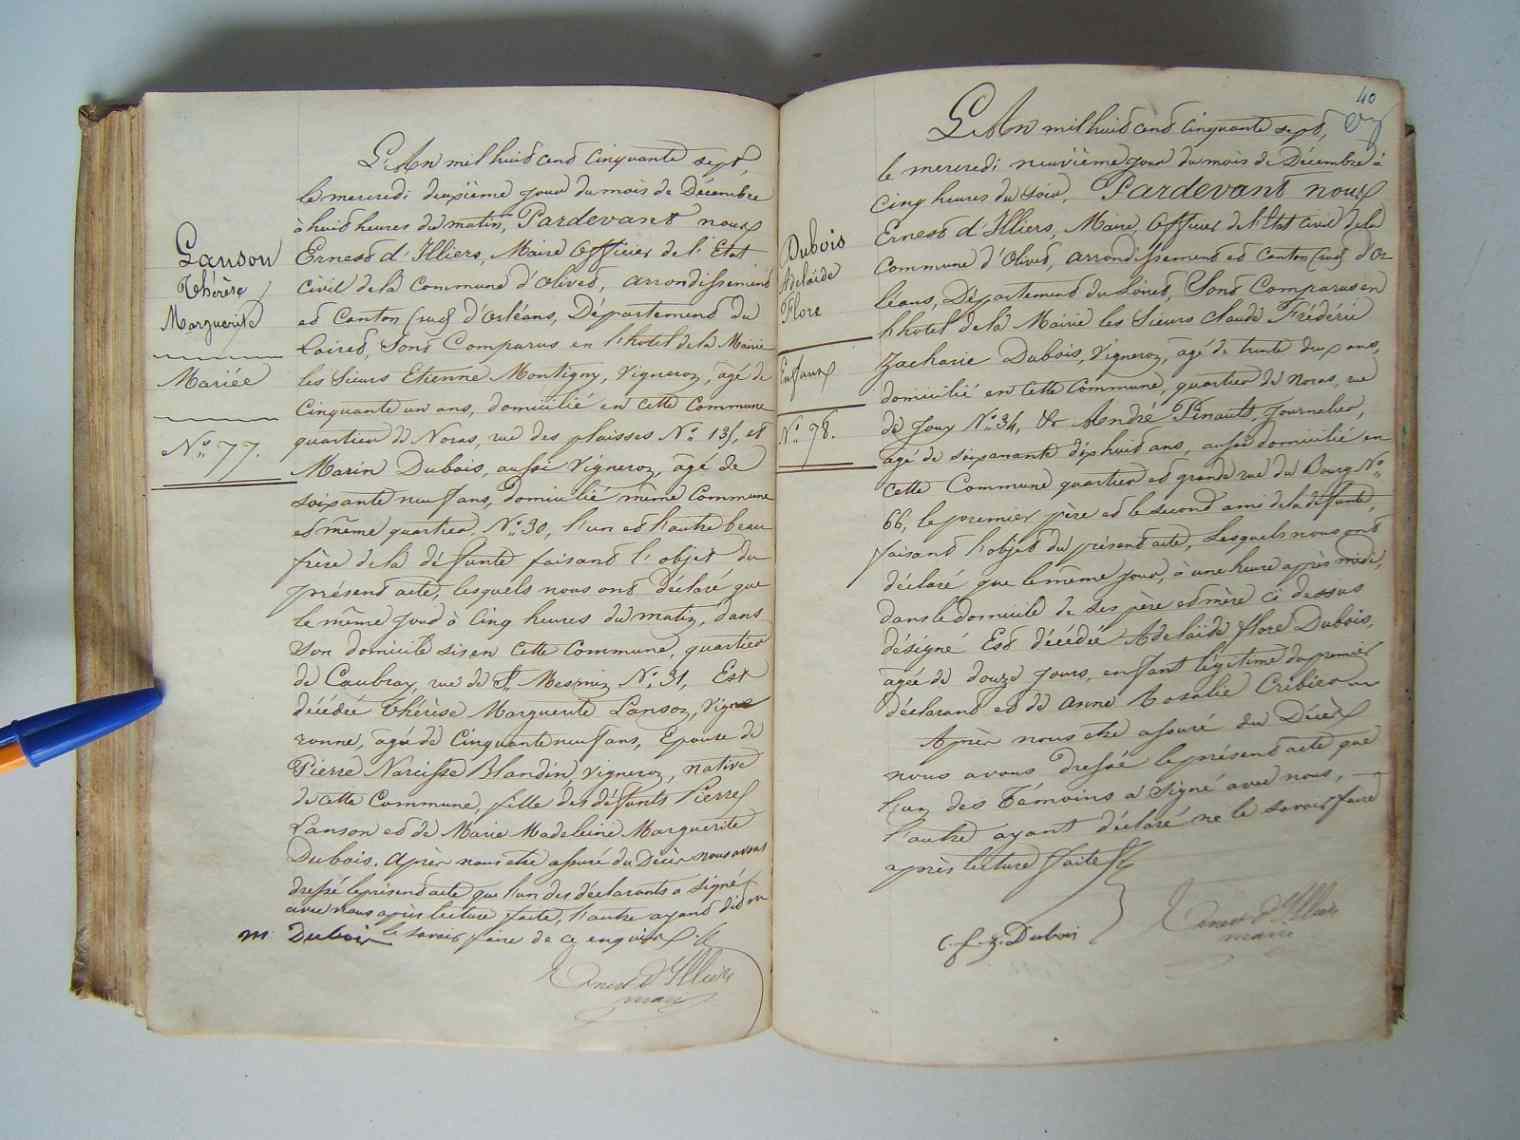 Lanson
Thérèse
Marguerite
Mariée
N° 77.
L'An mil huit cent cinquante sept,
le mercredi deuxième jour du mois de Décembre
à huit heures du matin, Pardevant nous
Ernest d'Illiers, Maire Officier de l'Etat
civil de la Commune d'Olivet, arrondissement
et Canton (sud) d'Orléans, Département du
Loiret, Sont Comparus en l'hotel de la Mairie
les Sieurs Etienne Montigny, Vigneron, âgé de
Cinquante un ans, domicilié en cette Commune
quartier de Noras, rue des plaisses N° 135, et
Marin Dubois, aussi Vigneron, âgé de
soixante neuf ans, domicilié même Commune
et même quartier, N° 30, l'un et l'autre beau
frère de la défunte faisant l'objet du
présent acte, lesquels nous ont déclaré que
le même jour à cinq heures du matin, dans
son domicile sis en cette Commune, quartier
de Caubray, rue de St Mesmin N° 31, Est
décédée Thérèse Marguerite Lanson, Vigne
ronne, âgée de Cinquante neuf ans, Epouse de
Pierre Narcisse Blandin Vigneron, native
de cette Commune, fille des défunts Pierre
Lanson et de Marie Madeleine Marguerite
Dubois. Après nous etre assuré du Décès nous avons
dressé le présent acte que l'un des déclarants a signé
avec nous après lecture faite, l'autre ayant dit ne
le savoir faire de ce enquis.
m Dubois
Ernest d'Illiers
maire
40
Dubois
Adelaïde
Flore
Enfant
N° 78.
L'An mil huit cent cinquante sept,
le mercredi neuvième jour du mois de Décembre à
cinq heures du soir, Pardevant nous
Ernest d'Illiers, Maire, Officier de l'Etat civil de la
Commune d'Olivet, arrondissement et canton (sud) d'Or
léans, Département du Loiret, Sont Comparus en
l'hotel de la Mairie les Sieurs Claude Frédéric
Zacharie Dubois, Vigneron, âgé de trente deux ans,
domicilié en cette Commune, quartier de Noras, rue
de Jouy N° 34, & André Pinault, Journalier,
âgé de soixante dix huit ans, aussi domicilié en
cette Commune quartier et grande rue du Bourg N°
66, le premier père et le second ami de la défunte,
faisant l'objet du présent acte, Lesquels nous ont
déclaré que le même jour, à une heure après midi,
dans le domicile de ses père et mère ci dessus
désigné Est décédée Adelaïde Flore Dubois,
âgée de douze jours, enfant légitime du premier
déclarant et de Anne Rosalie Cribier
Après nous etre assuré du Décès
nous avons dressé le présent acte que
l'un des Témoins a signé avec nous,
l'autre ayant déclaré ne le savoir faire
après lecture faite
C. f. z. Dubois
Ernest d'Illiers
maire